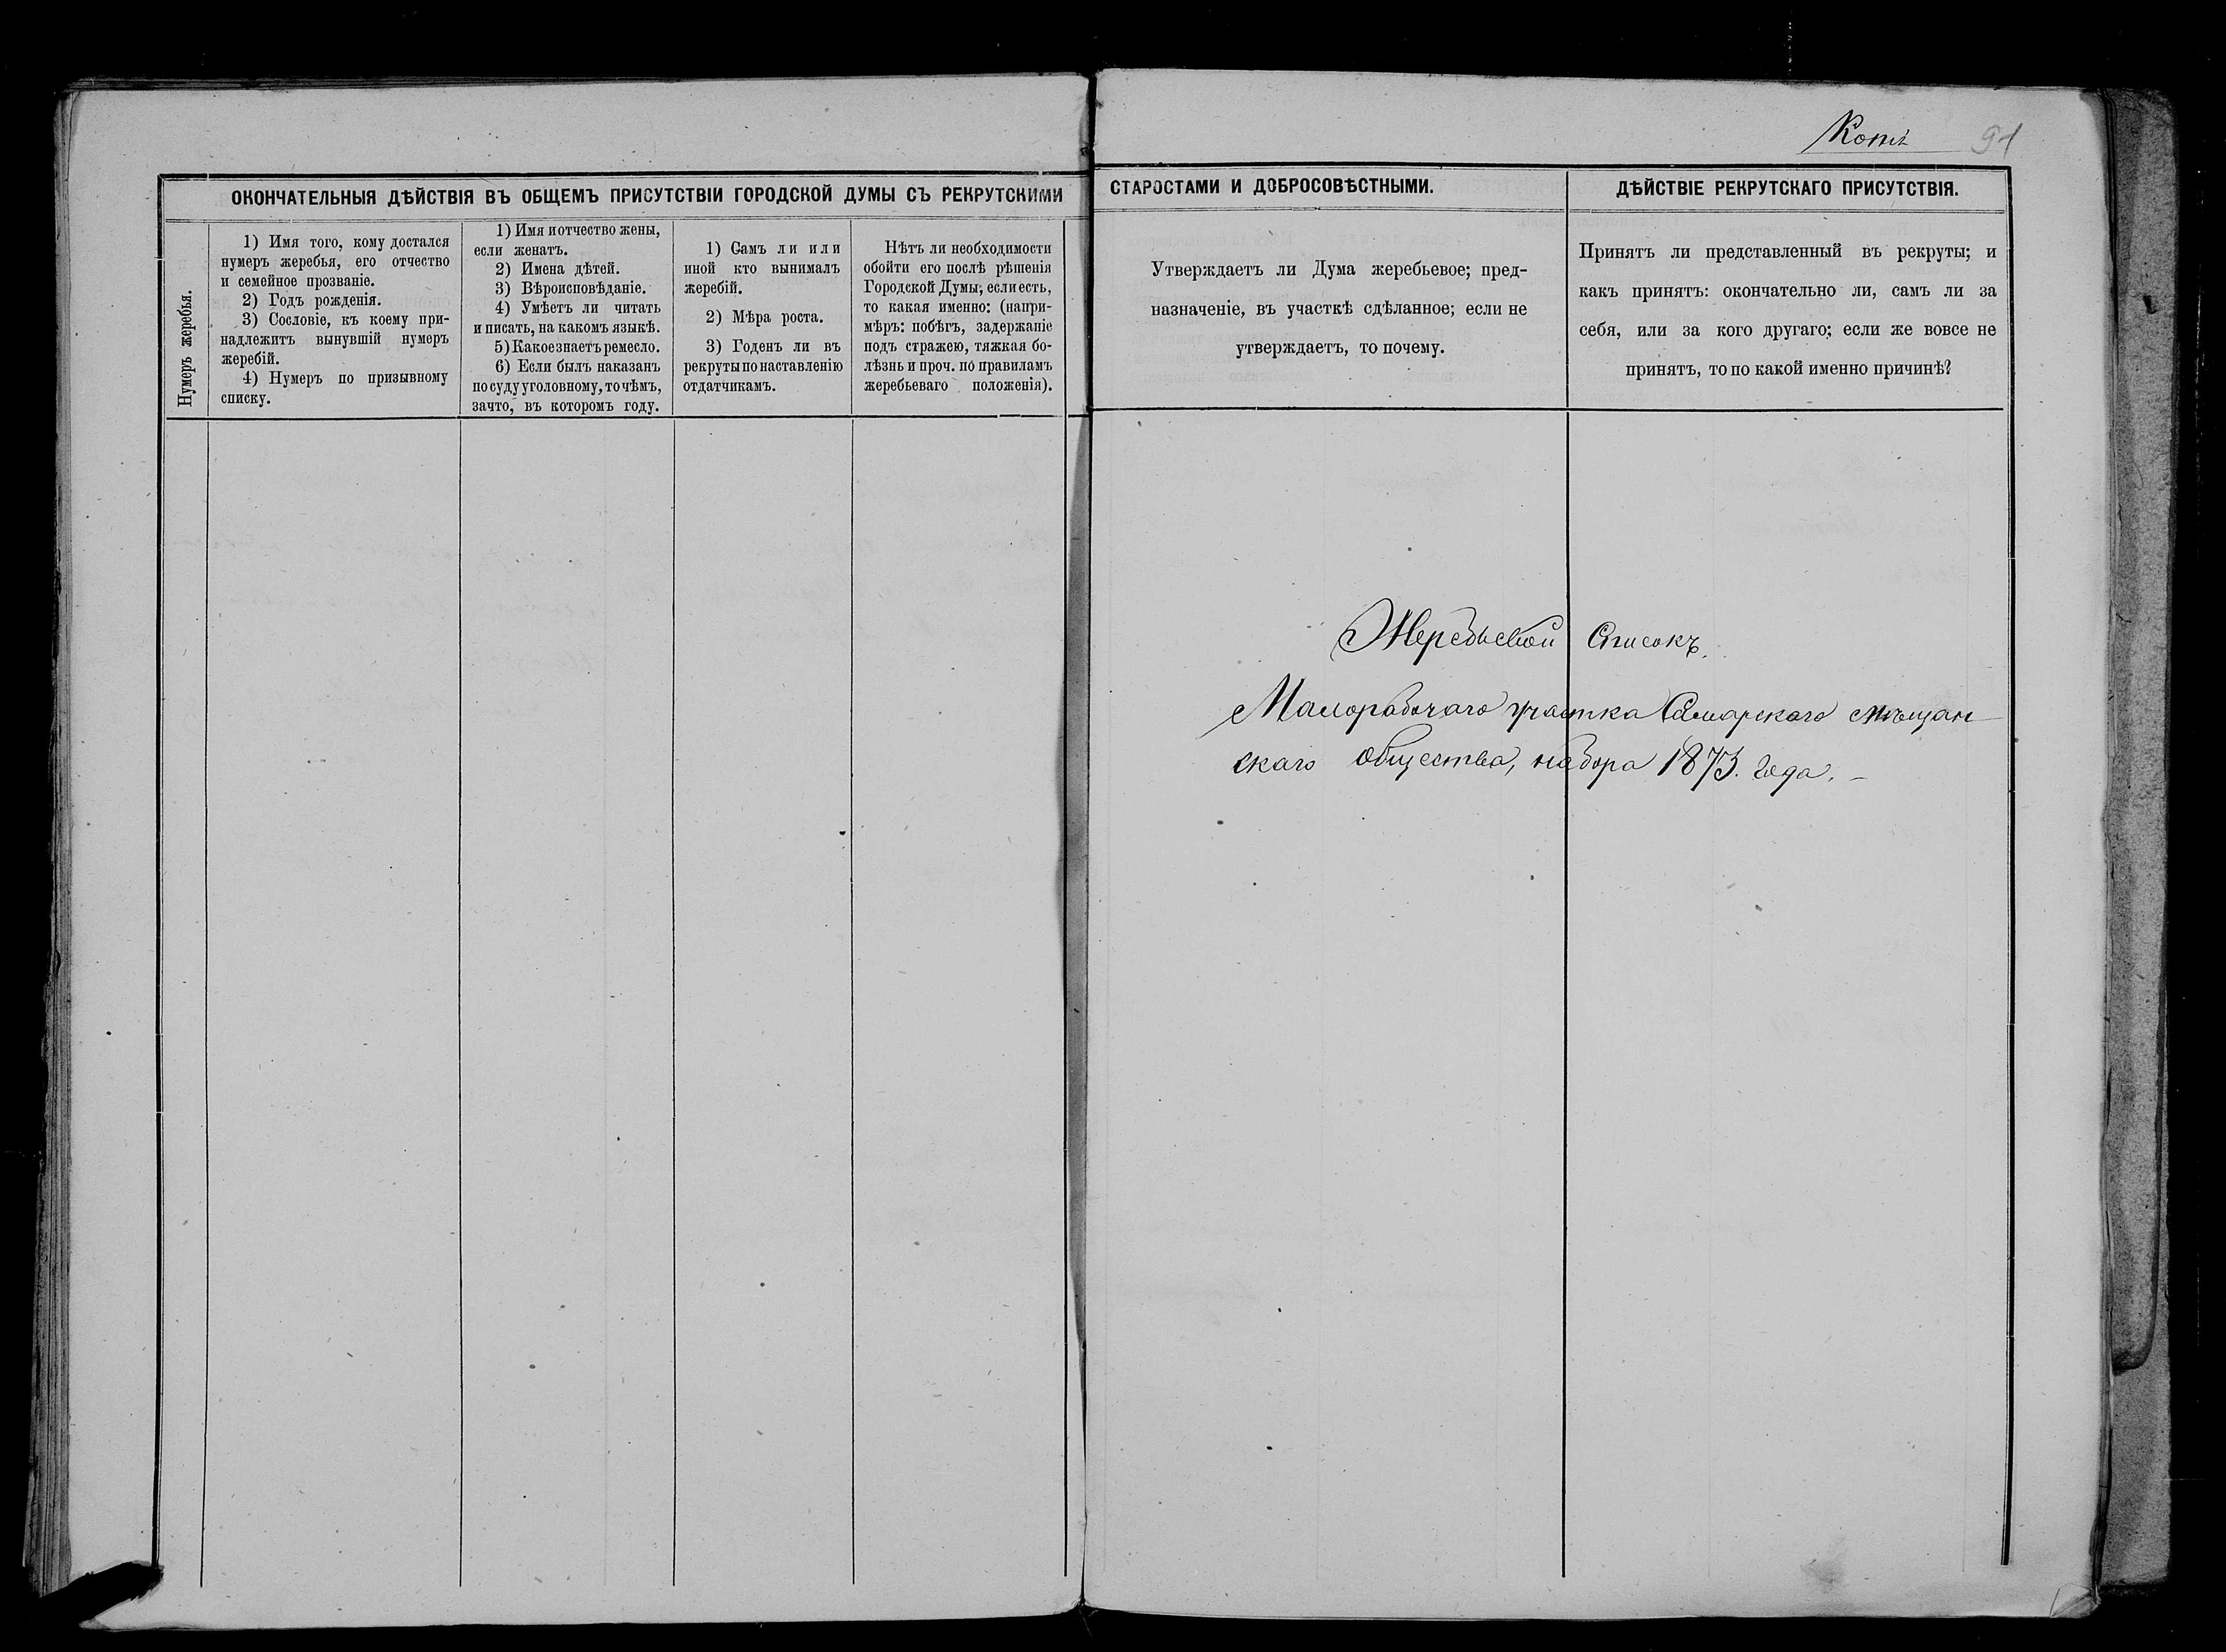 Копія 91
ОКОНЧАТЕЛЬНЫЯ ДѢЙСТВІЯ ВЪ ОБЩЕМЪ ПРИСУТСТВІИ ГОРОДСКОЙ ДУМЫ СЪ РЕКРУТСКИМИ СТАРОСТАМИ И ДОБРОСОВѢСТНЫМИ.
ДѢЙСТВІЕ РЕКРУТСКАГО ПРИСУТСТВІЯ.
Нумеръ жеребья.
1) Имя того, кому достался
нумеръ жеребья, его отчество
и семейное прозваніе.
2) Годъ рожденія.
3) Сословіе, къ коему при-
надлежитъ вынувшій нумеръ
жеребій.
4) Нумеръ по призывному
списку.
1) Имя и отчество жены,
если женатъ.
2) Имена дѣтей.
3) Вѣроисповѣданіе.
4) Умѣетъ ли читать
и писать, на какомъ языкѣ.
5) Какое знаетъ ремесло.
6) Если былъ наказанъ
по суду уголовному, то чѣмъ,
за что, въ которомъ году.
1) Самъ ли или
иной кто вынималъ
жеребій.
2) Мѣра роста.
3) Годенъ ли въ
рекруты по наставленію
отдатчикамъ.
Нѣтъ ли необходимости
обойти его послѣ рѣшенія
Городской Думы; если есть,
то какая именно: (напри-
мѣръ: побѣгъ, задержаніе
подъ стражею, тяжкая бо-
лѣзнь и проч. по правиламъ
жеребьеваго положенія).
Утверждаетъ ли Дума жеребьевое; пред-
назначеніе, въ участкѣ сдѣланное; если не
утверждаетъ, то почему.
Принятъ ли представленный въ рекруты; и
какъ принятъ: окончательно ли, самъ ли за
себя, или за кого другаго; если же вовсе не
принятъ, то по какой именно причинѣ?
Жеребьевой Списокъ.
Малорабочаго участка Самарскаго мѣщан-
скаго общества, набора 1873. года. –